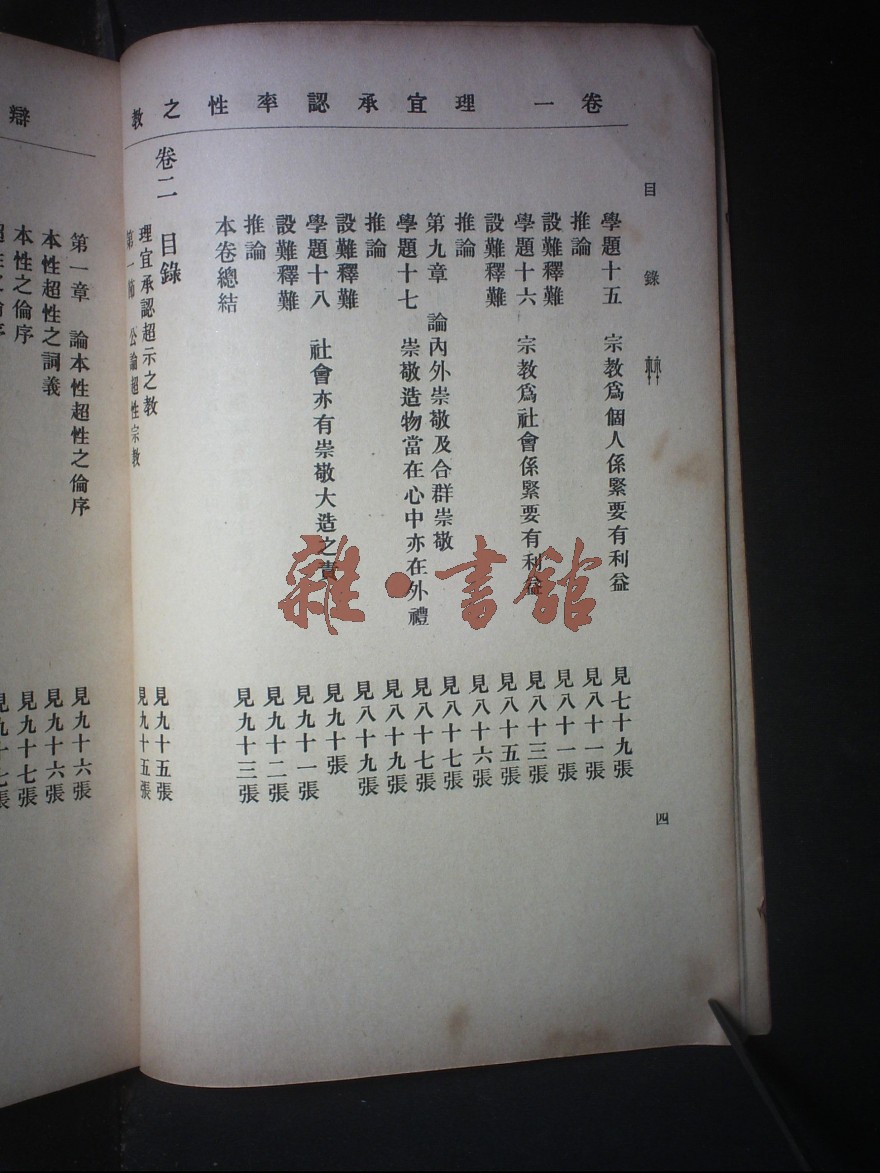 卷一 理宜承認率性之教
目錄 四
學題十五 宗教爲個人係緊要有利益 見七十九張
推論 見八十一張
設難釋難 見八十一張
學題十六 宗教爲社會係緊要有利益 見八十三張
設難釋難 見八十五張
推論 見八十六張
第九章 論內外崇敬及合群崇敬 見八十七張
學題十七 崇敬造物當在心中亦在外禮 見八十七張
推論 見八十九張
設難釋難 見八十九張
學題十八 社會亦有崇敬大造之責 見九十張
設難釋難 見九十一張
推論 見九十二張
本卷總結 見九十三張
卷二 目錄
理宜承認超示之教 見九十五張
第一 公論超性宗教 見九十五張
辯
第一章 論本性超性之倫序 見九十六張
本性超性之詞義 見九十六張
本性之倫序 見九十七張
超性之倫序 見九十七張
雜·書館